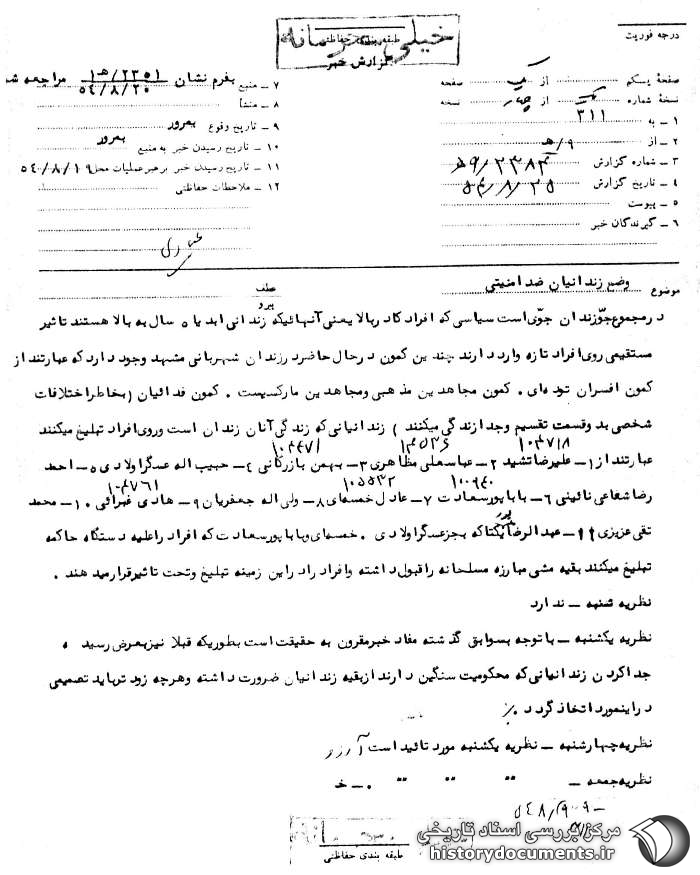 خیلی محرمانه
طبقه بندی حفاظتی
گزارش خبر
درجه فوریت
صفحهٔ یکم از یک صفحه
نسخهٔ شماره یک از چهار نسخه
۱ ـ به ۳۱۱
۲ ـ از ۹/هـ
۳ ـ شماره گزارش
۴ ـ تاریخ گزارش ۵۴/۸/۲۵
۵ ـ پیوست
۶ ـ گیرندگان خبر
۷ ـ منبع بفرم نشان ۲۳۵۱/هـ۱ ۵۴/۸/۲۰ مراجعه شد
۸ ـ منشأ
۹ ـ تاریخ وقوع بمرور
۱۰ ـ تاریخ رسیدن خبر به منبع بمرور
۱۱ ـ تاریخ رسیدن خبر برهبر عملیات محل ۵۴/۸/۱۹
۱۲ ـ ملاحظات حفاظتی
موضوع وضع زندانیان ضد امنیتی
عطف
پیرو
در مجموع جوّ زندان جوّی است سیاسی که افراد کادر بالا یعنی آنهائیکه زندانی ابد یا ۵ سال به بالا هستند تاثیر
مستقیمی روی افراد تازه وارد دارند چندین کمون در حال حاضر در زندان شهربانی مشهد وجود دارد که عبارتند از
کمون افسران توده‌ای ـ کمون مجاهدین مذهبی ومجاهدین مارکسیست ـ کمون فدائیان (بخاطر اختلافات
شخصی بدو قسمت تقسیم وجدا زندگی میکنند) زندانیانی که زندگی آنان زندان است وروی افراد تبلیغ میکنند
۱۰۴۷۱۸ ۱۰۴۴۷۱
عبارتند از ۱ ـ علیرضا تشید ۲ ـ عباسعلی مظاهری ۳ ـ بهمن بازرگانی ۴ ـ حبیب اله عسگراولادی ۵ ـ احمد
۱۰۰۹۴۰ ۱۰۵۵۳۲ ۱۰۴۷۶۱
رضا شعاعی نائینی ۶ ـ بابا پورسعادت ۷ ـ عادل خمسه‌ای ۸ ـ ولی اله جعفریان ۹ ـ هادی غبرائی ۱۰ ـ محمد
تقی عزیزی ۱۱ ـ عبدالرضا یکتا که بجز عسگراولادی ـ خمسه‌ای وبابا پورسعادت که افراد را علیه دستگاه حاکمه
تبلیغ میکنند بقیه مشی مبارزه مسلحانه را قبول داشته وافراد را در این زمینه تبلیغ وتحت تاثیر قرار میدهند ـ
نظریه شنبه ـ ندارد
نظریه یکشنبه ـ با توجه بسوابق گذشته مفاد خبر مقرون به حقیقت است بطوریکه قبلا نیز بعرض رسیده
جدا کردن زندانیانی که محکومیت سنگین دارند از بقیه زندانیان ضرورت داشته وهرچه زودتر باید تصمیمی
در اینمورد اتخاذ گردد ٪
نظریه چهارشنبه ـ نظریه یکشنبه مورد تائید است آرزو
نظریه جمعه ـ " " " ـ خ
طبقه بندی حفاظتی
مرکز بررسی اسناد تاریخی
historydocuments.ir